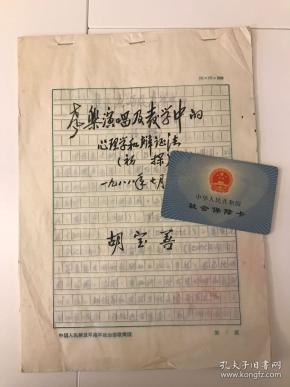 声乐演唱及教学中的
心理学和辩证法
(初探)
一九八八年七月
胡宝善
中华人民共和国
社会保障卡
中国人民解放军海军政治部歌舞团
第 页
孔夫子旧书网